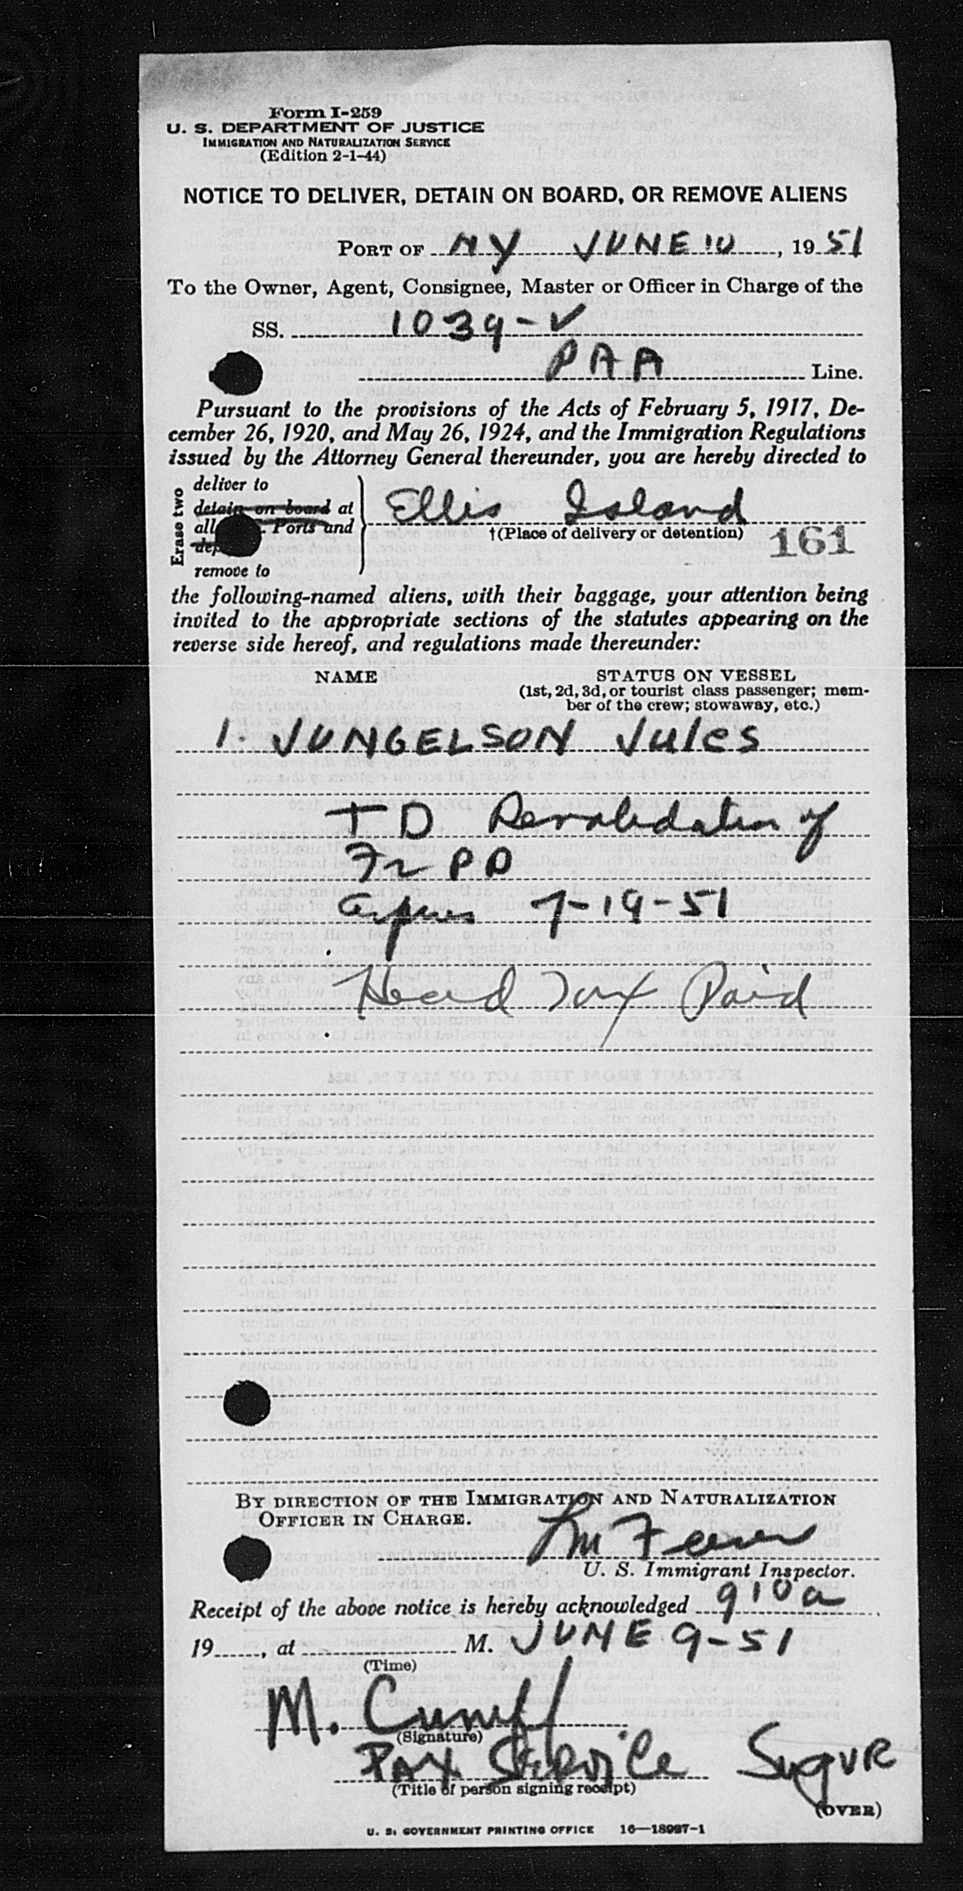 Form I-259
U. S. DEPARTMENT OF JUSTICE
IMMIGRATION AND NATURALIZATION SERVICE
(Edition 2-1-44)
NOTICE TO DELIVER, DETAIN ON BOARD, OR REMOVE ALIENS
PORT OF NY JUNE 10, 1951
To the Owner, Agent, Consignee, Master or Officer in Charge of the
SS. 1039-V
PAA Line.
Pursuant to the provisions of the Acts of February 5, 1917, De-
cember 26, 1920, and May 26, 1924, and the Immigration Regulations
issued by the Attorney General thereunder, you are hereby directed to
Erase two
deliver to
detain on board at
all Ports and
remove to
Ellis Island
†(Place of delivery or detention)
161
the following-named aliens, with their baggage, your attention being
invited to the appropriate sections of the statutes appearing on the
reverse side hereof, and regulations made thereunder:
NAME STATUS ON VESSEL
(1st, 2d, 3d, or tourist class passenger; mem-
ber of the crew; stowaway, etc.)
1. JUNGELSON Jules
TD Revalidation of
Fr PP
expires 7-19-51
Head Tax Paid
BY DIRECTION OF THE IMMIGRATION AND NATURALIZATION
OFFICER IN CHARGE.
U. S. Immigrant Inspector.
Receipt of the above notice is hereby acknowledged 910a
19, at M. JUNE 9-51
(Time)
M. Cuniff
(Signature)
PAX SERVICE SUPVR
(Title of person signing receipt)
(OVER)
U. S. GOVERNMENT PRINTING OFFICE 16—18987-1